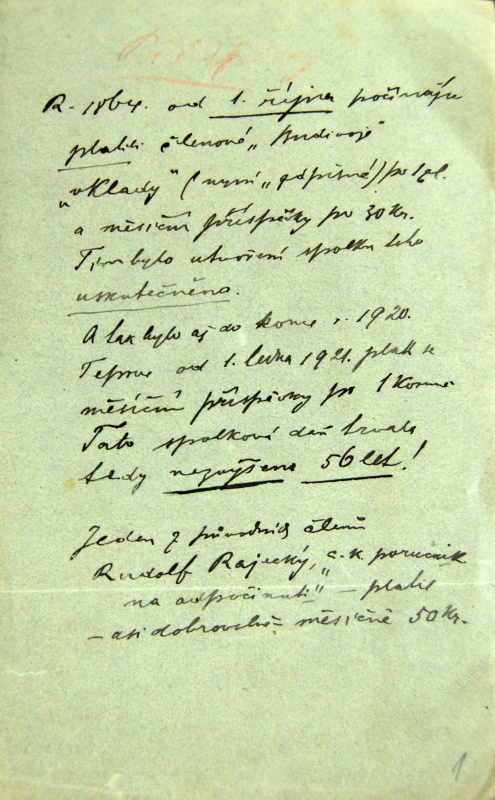 Příspěvky
R. 1864. od 1. října počínaje
platili členové „Budivoje“
„vklady“ (nyní „zápisné) po 1 zl.
a měsíční příspěvky po 30 Kr.
Tím bylo utvoření spolku toho
uskutečněno.
A tak bylo až do konce r. 1920.
Teprve od 1. ledna 1921. platí se
měsíční příspěvky po 1 Koruně
Tato spolková daň trvala
tedy nezvýšena 56 let!
Jeden z původních členů
Rudolf Rajecký, „c. k. poručík
na odpočinutí“ – platil
– asi dobrovolně – měsíčně 50 Kr.
1